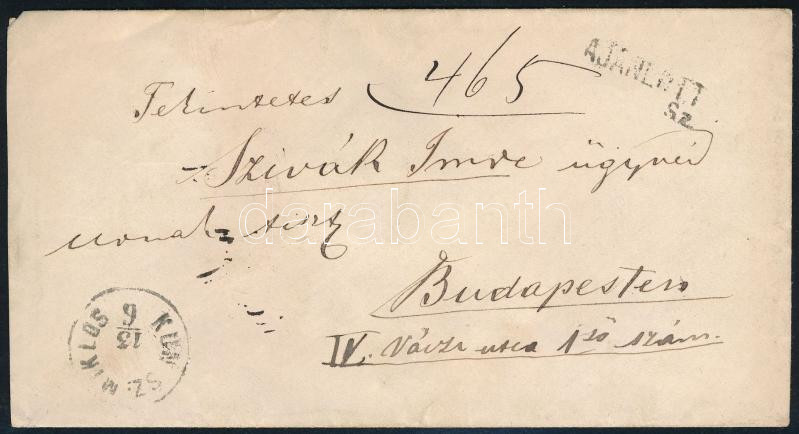 465
AJÁNLOTT
Sz.
Tekintetes
Szivák Imre ügyvéd
urnak tiszt
darabanth
Budapesten
IV. Váczi utca 1ső szám.
KUN SZ. MIKLOS
13
6